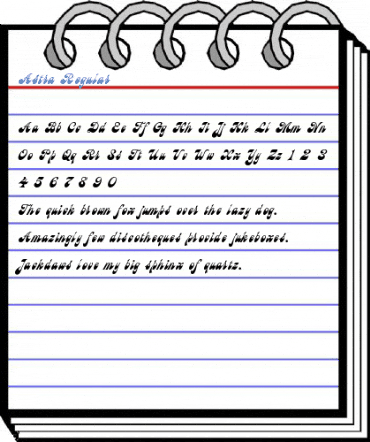 Adita Regular
Aa Bb Cc Dd Ee Ff Gg Hh Ii Jj Kk Ll Mm Nn
Oo Pp Qq Rr Ss Tt Uu Vv Ww Xx Yy Zz 1 2 3
4 5 6 7 8 9 0
The quick brown fox jumps over the lazy dog.
Amazingly few discotheques provide jukeboxes.
Jackdaws love my big sphinx of quartz.